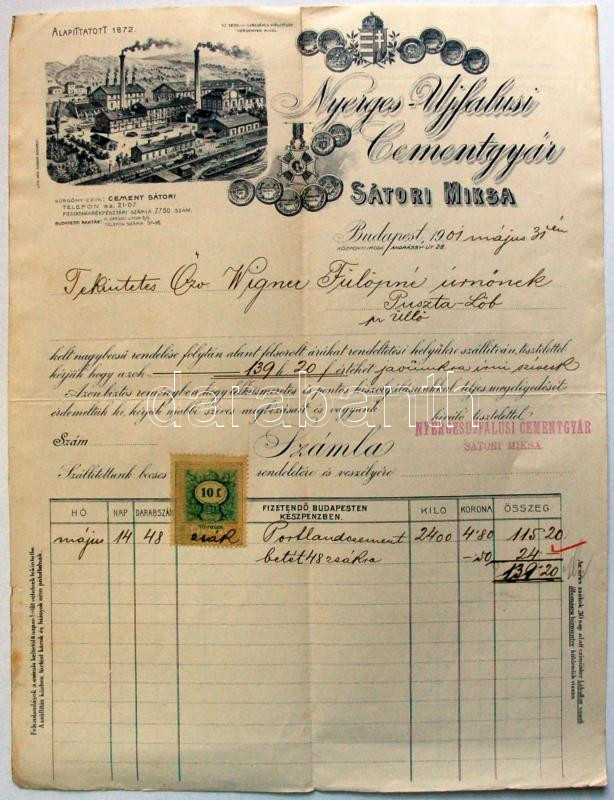 ALAPÍTTATOTT 1872.
Nyerges-Ujfalusi
Cementgyár
SÁTORI MIKSA
SÜRGÖNY-CZIM: CEMENT SÁTORI
TELEFON SZ. 21-07
POSTATAKARÉKPÉNZTÁRI SZÁMLA 7750. SZÁM.
BUDAPESTI RAKTÁR:
TELEFON SZÁMA
Budapest, 1901 május 31 én
KÖZPONTI IRODA: ANDRÁSSY-ÚT 28.
Tekintetes Özv Wigner Fülöpné úrnőnek
Puszta-Löb
pr Üllő
kelt nagybecsű rendelése folytán alant felsorolt árúkat rendeltetési helyükre szállítván, tisztelettel
kérjük hogy azok 139 k 20 f értékét javunkra írni szíveskedjék
Azon biztos reményben, hogy lelkiismeretes és pontos kiszolgálásunkkal teljes megelégedését
érdemeltük ki, kérjük újabb szíves megbízásait és vagyunk
kiváló tisztelettel
NYERGESUJFALUSI CEMENTGYÁR
SÁTORI MIKSA.
Szám
Számla
Szállítottunk becses rendeletére és veszélyére
10 f.
HÓ NAP DARABSZÁM FIZETENDŐ BUDAPESTEN KÉSZPÉNZBEN. KILO KORONA ÖSSZEG
május 14 48 zsák Portlandcement 2400 4·80 115·20
betét 48 zsákra -·50 24 -
139·20
darabanth